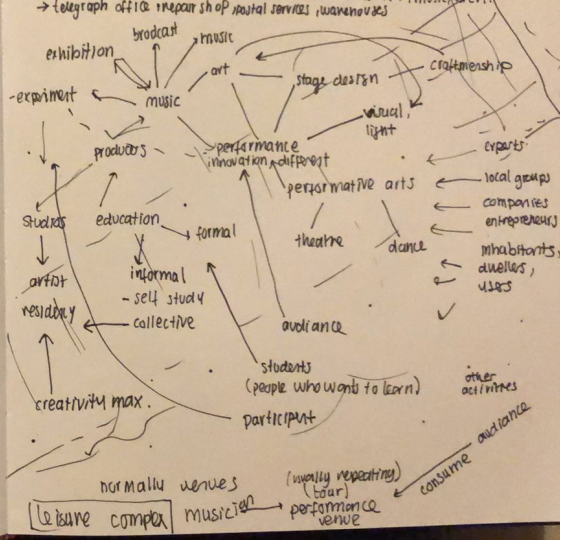 → telegraph office, repair shop, postal services, warehouses
brodcast
music
exhibition
art
craftmership
stage design
- experiment
music
visual,
light
producers
performance
innovation, different
experts
performative arts
local groups
companies
entrepreneurs
studios
education
formal
theatre
dance
inhabitants,
duellers,
users
informal
- self study
collective
artist
residency
audiance
students
(people who wants to learn)
other
activities
creativity max.
participant
audiance
consume
normally venues
(usually repeating)
(tour)
leisure complex
musician
performance
venue